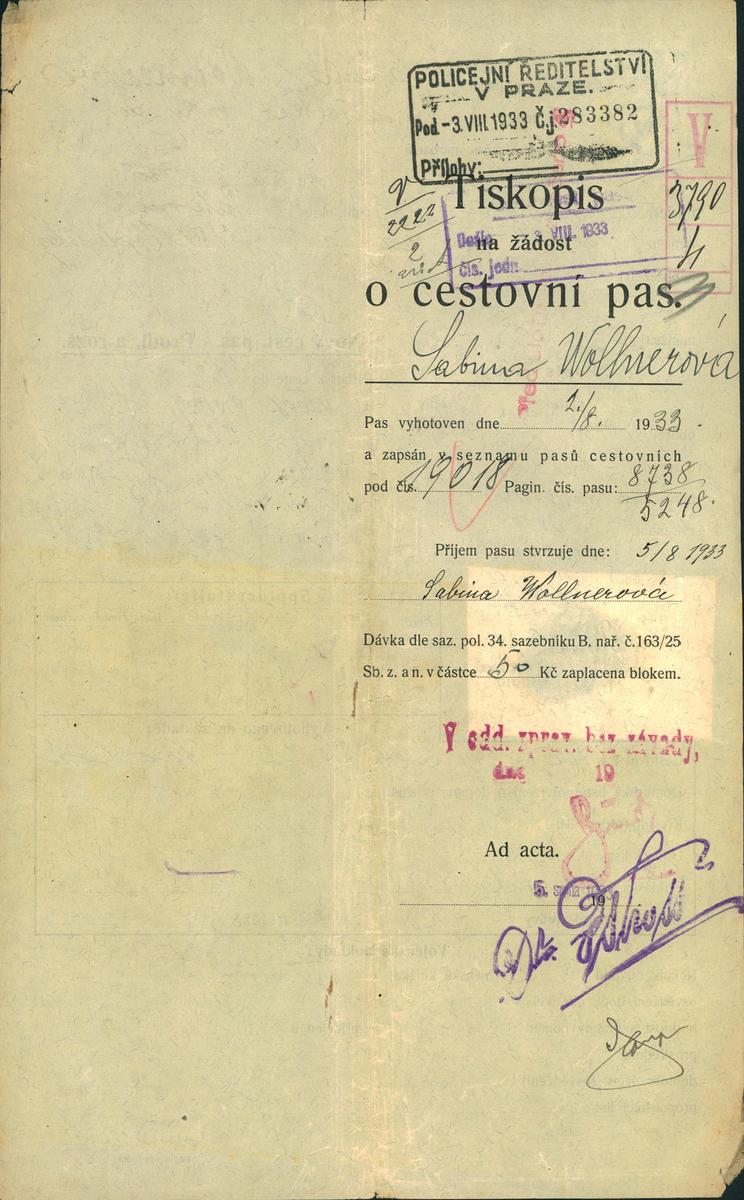 POLICEJNÍ ŘEDITELSTVÍ
V PRAZE.
Pod. -3.VIII.1933 č.j. 283382
Přílohy:
V
3790
4
2222
2
Tiskopis
Došlo 3. VIII. 1933
na žádost
čís. jedn.
o cestovní pas.
Sabina Wollnerová
Pas vyhotoven dne 2./8. 1933.
a zapsán v seznamu pasů cestovních
pod čís. 19018 Pagin. čís. pasu: 8738
5248.
Příjem pasu stvrzuje dne: 5/8 1933
Sabina Wollnerová
Dávka dle saz. pol. 34. sazebníku B. nař. č.163/25
Sb. z. a n. v částce 50 Kč zaplacena blokem.
V odd. zprav. bez závady,
dne 19
Ad acta.
5. srpna 19
Dr.